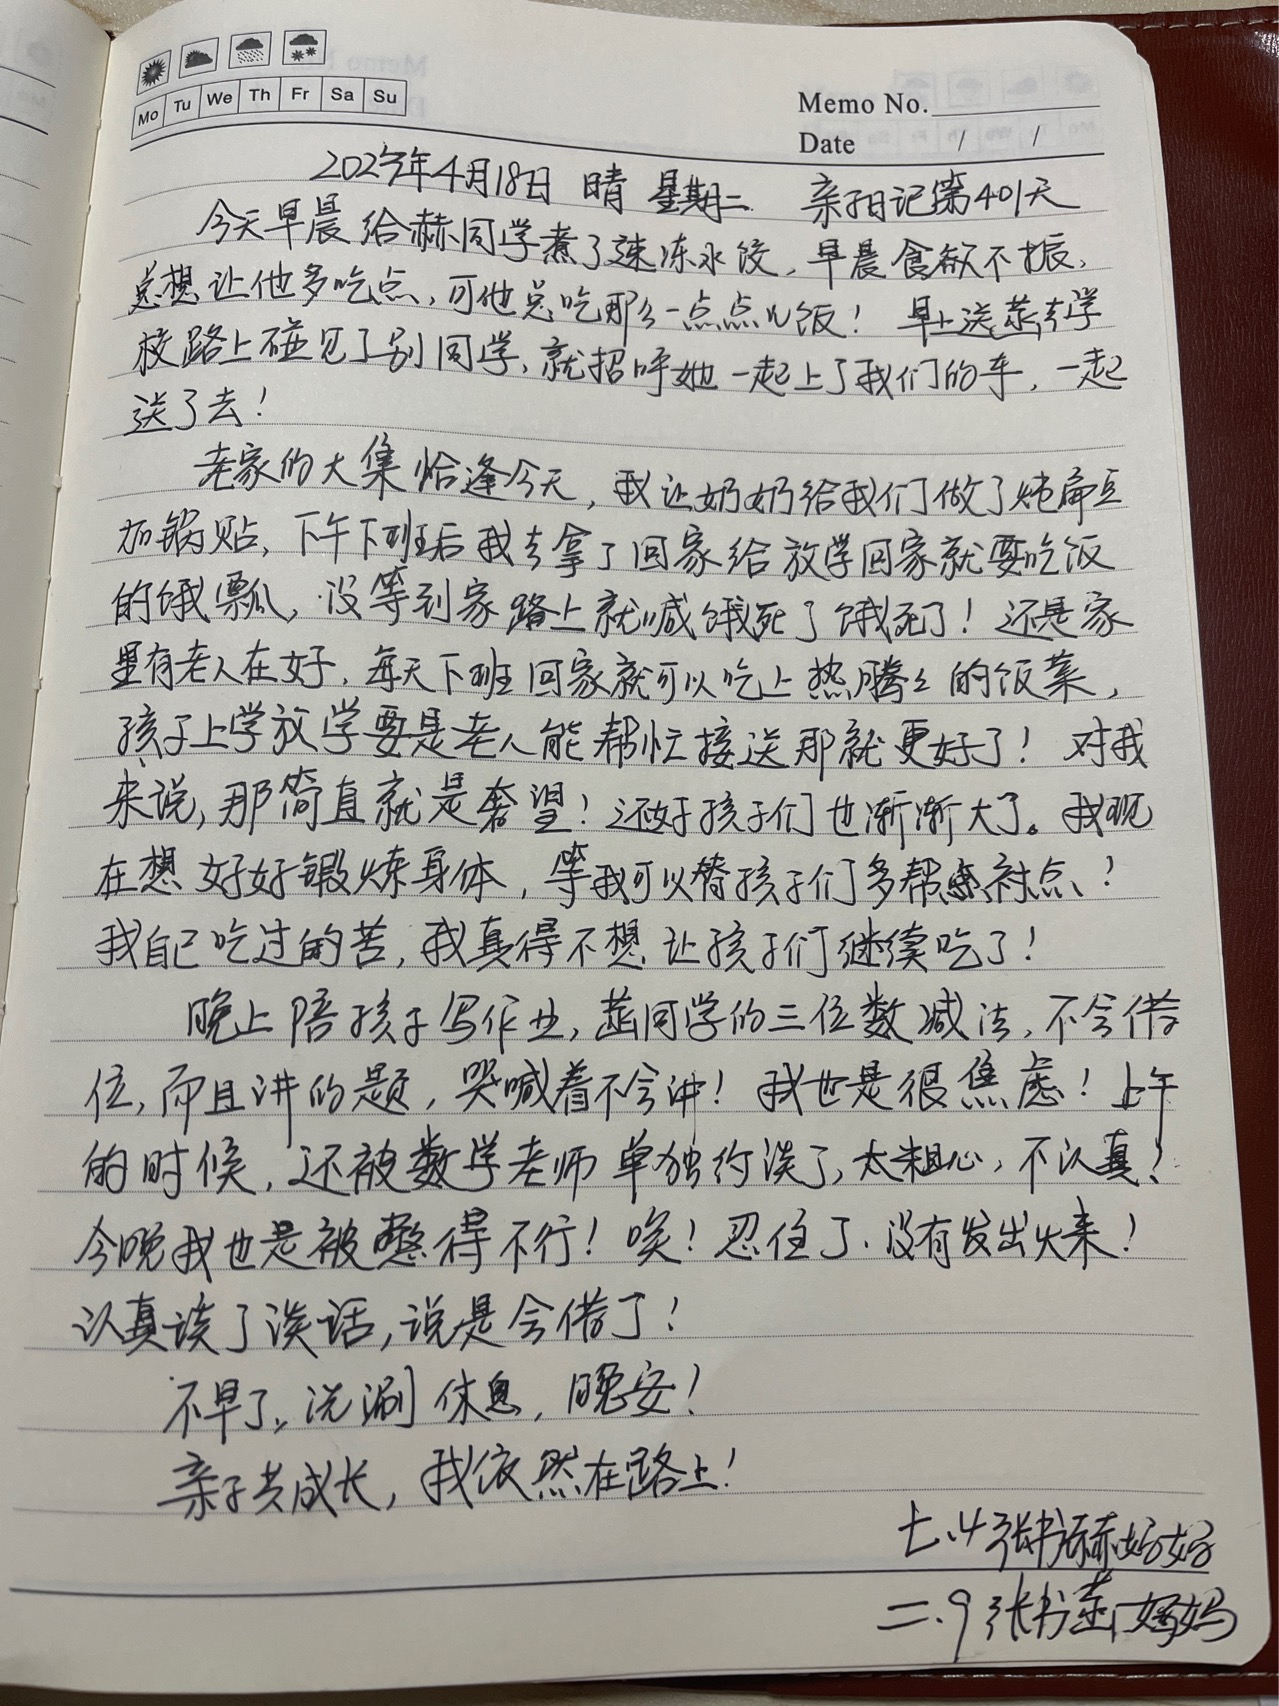 Mo Tu We Th Fr Sa Su
Memo No.
Date / /
2023年4月18日 晴 星期二 亲子日记第401天
今天早晨给赫同学煮了速冻水饺，早晨食欲不振，
总想让他多吃点，可他总吃那么一点点儿饭！早上送蕊去学
校路上碰见了别同学，就招呼她一起上了我们的车，一起
送了去！
老家的大集恰逢今天，我让奶奶给我们做了炖扁豆
加锅贴，下午下班后我去拿了回家给放学回家就要吃饭
的饿瓢，没等到家路上就喊饿死了饿死了！还是家
里有老人在好，每天下班回家就可以吃上热腾々的饭菜，
孩子上学放学要是老人能帮忙接送那就更好了！对我
来说，那简直就是奢望！还好孩子们也渐渐大了。我现
在想好好锻炼身体，等我可以替孩子们多帮衬点！
我自己吃过的苦，我真得不想让孩子们继续吃了！
晚上陪孩子写作业，同学的三位数减法，不会借
位，而且讲的题，哭喊着不会冲！我也是很焦虑！上午
的时候，还被数学老师单独约谈了，太粗心，不认真！
今晚我也是被憋得不行！唉！忍住了，没有发出火来！
认真谈了谈话，说是会借了！
不早了，洗涮休息，晚安！
亲子共成长，我依然在路上！
七.4张书赫妈妈
二.9张书妈妈